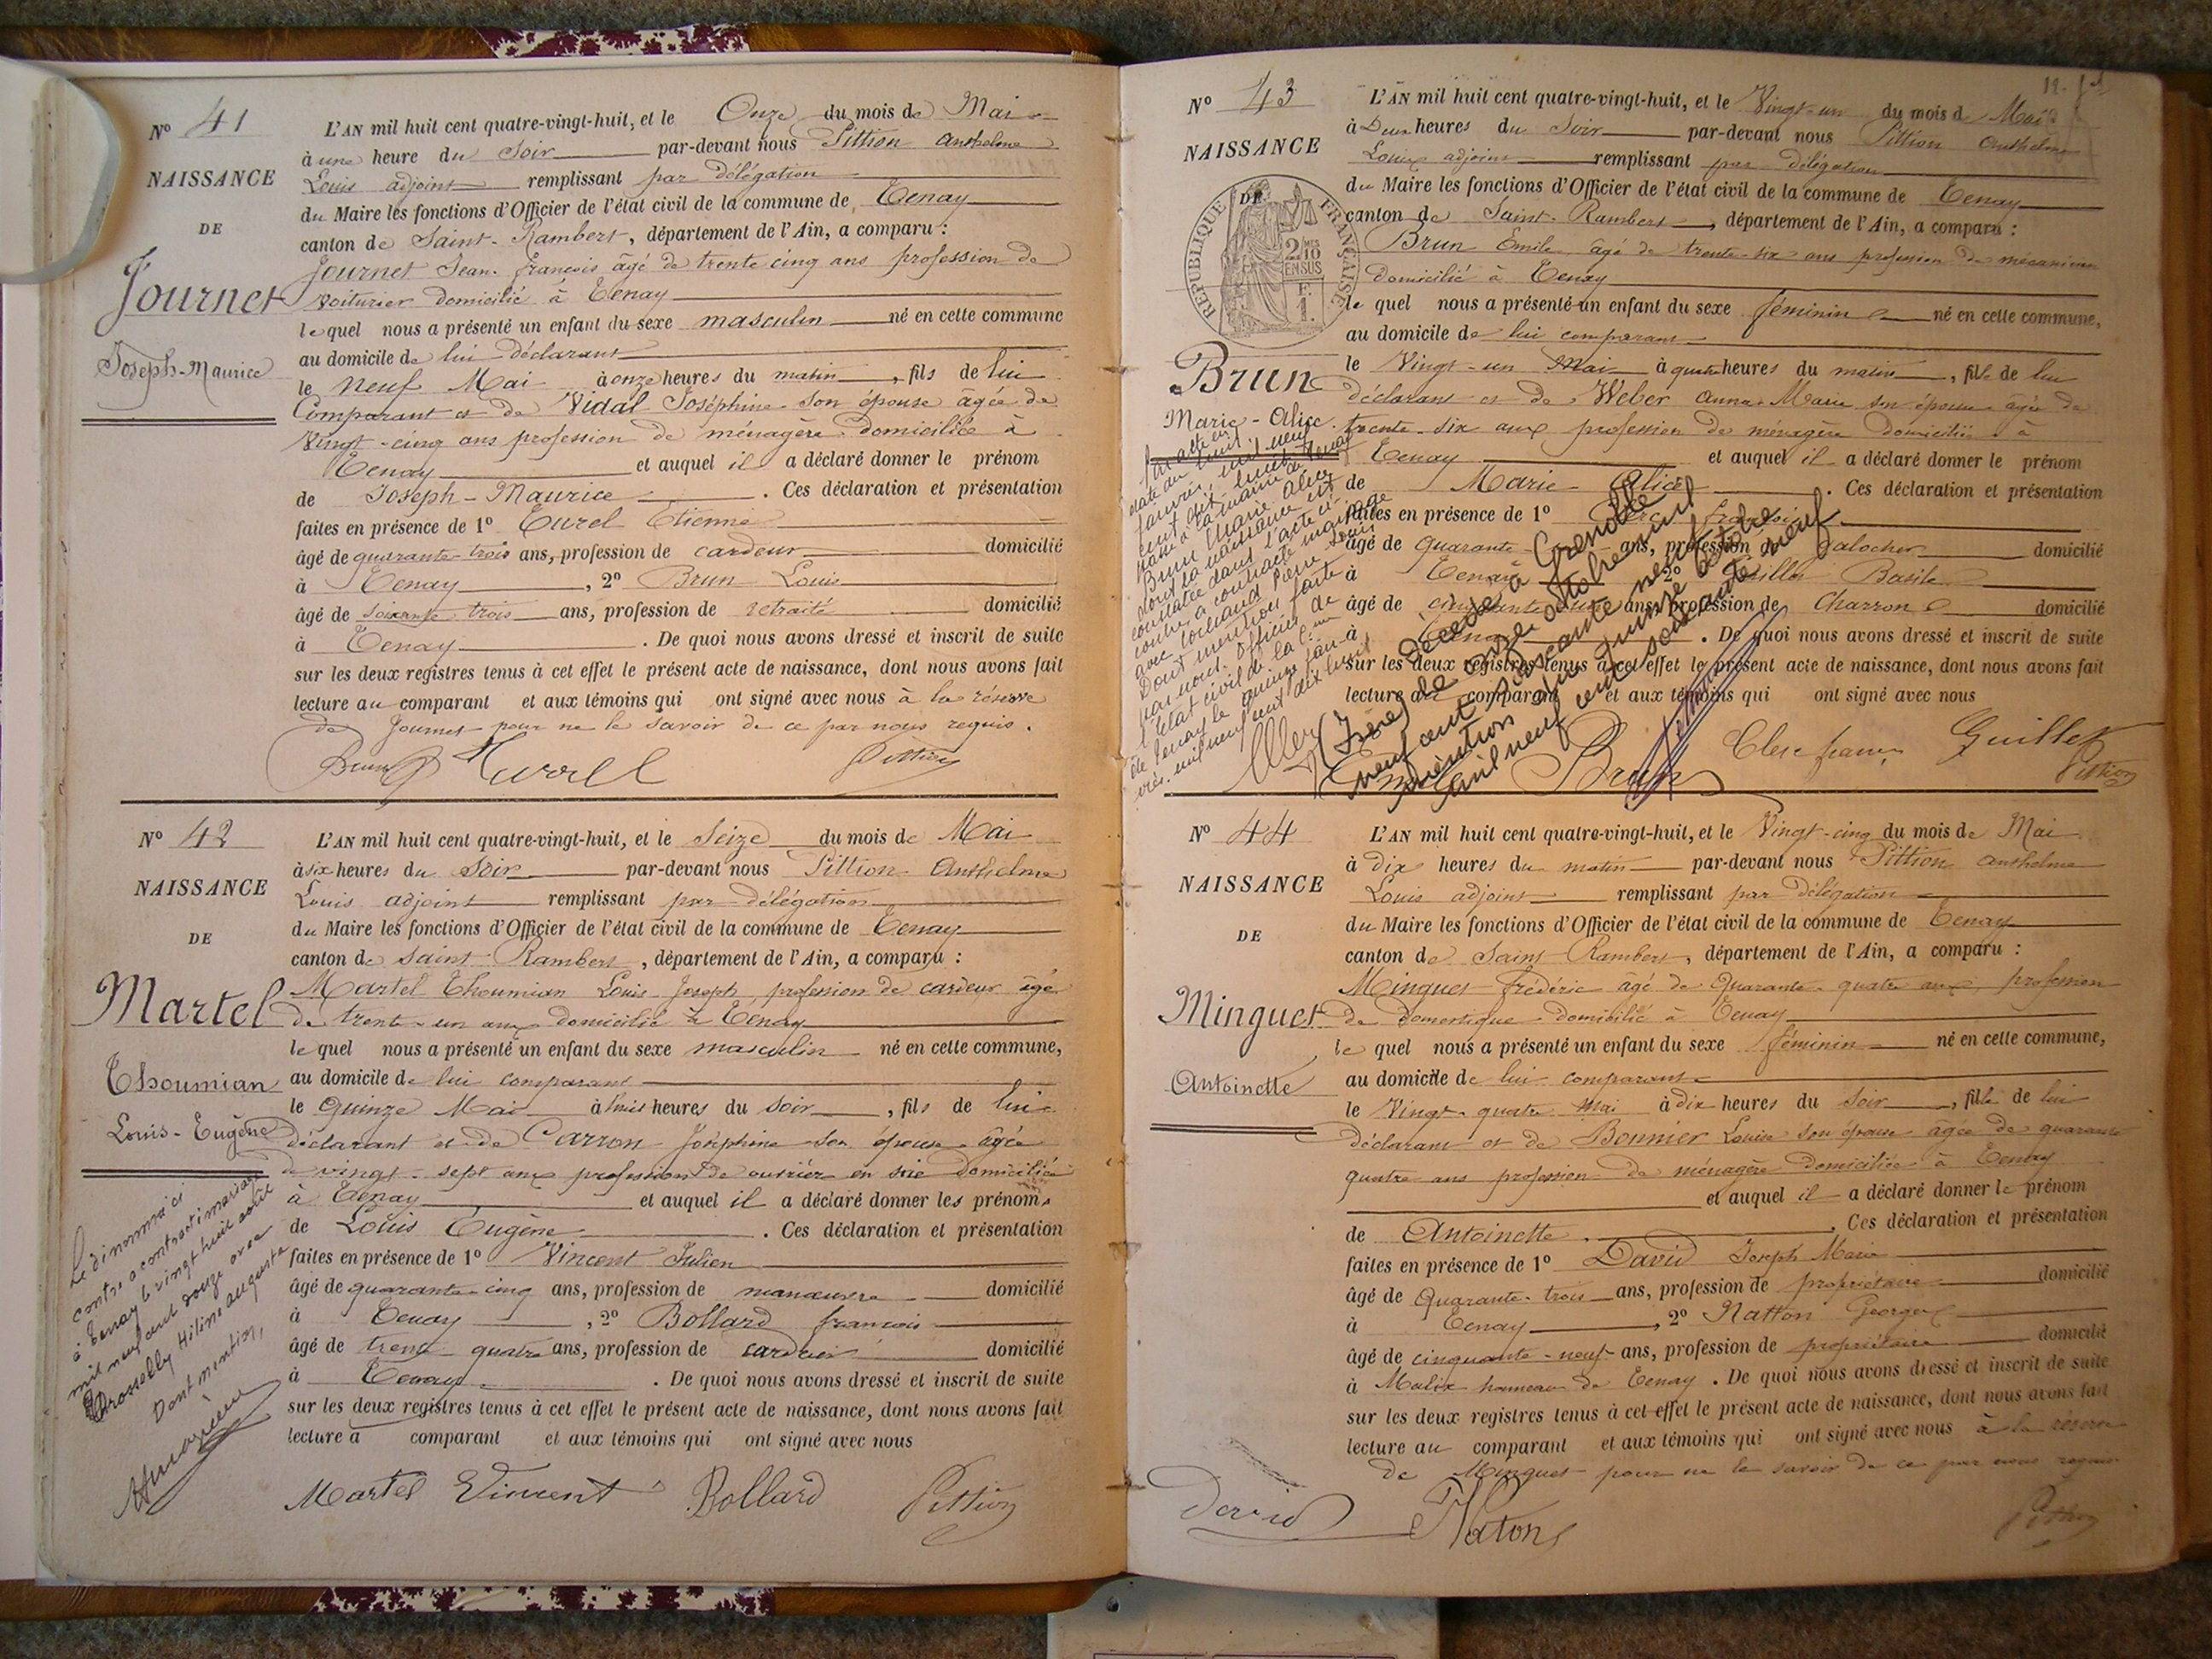 N° 41
NAISSANCE
DE
Journet
Joseph-Maurice
L'AN mil huit cent quatre-vingt-huit, et le Onze du mois de Mai
à une heure du Soir par-devant nous Pittion Anthelme
Louis adjoint remplissant par délégation
du Maire les fonctions d'Officier de l'état civil de la commune de Tenay
canton de Saint-Rambert, département de l'Ain, a comparu :
Journet Jean-François âgé de trente cinq ans profession de
voiturier domicilié à Tenay
le quel nous a présenté un enfant du sexe masculin né en cette commune
au domicile de lui déclarant
le neuf Mai à onze heures du matin, fils de lui
Comparant et de Vidal Joséphine son épouse agée de
Vingt-cinq ans profession de ménagère domiciliée à
Tenay et auquel il a déclaré donner le prénom
de Joseph-Maurice. Ces déclaration et présentation
faites en présence de 1° Turel Etienne
âgé de quarante-trois ans, profession de cardeur domicilié
à Tenay, 2° Brun Louis
âgé de soixante trois ans, profession de retraité domicilié
à Tenay. De quoi nous avons dressé et inscrit de suite
sur les deux registres tenus à cet effet le présent acte de naissance, dont nous avons fait
lecture au comparant et aux témoins qui ont signé avec nous à la réserve
de Journet pour ne le savoir de ce par nous requis.
Brun Pittion
N° 42
NAISSANCE
DE
Martel
Thoumian
Louis-Eugène
L'AN mil huit cent quatre-vingt-huit, et le Seize du mois de Mai
à six heures du Soir par-devant nous Pittion Anthelme
Louis adjoint remplissant par délégation
du Maire les fonctions d'Officier de l'état civil de la commune de Tenay
canton de Saint Rambert, département de l'Ain, a comparu :
Martel Thoumian Louis Joseph profession de cardeur âgé
de trente-un ans domicilié à Tenay
le quel nous a présenté un enfant du sexe masculin né en cette commune,
au domicile de lui comparant
le Quinze Mai à huit heures du soir, fils de lui
déclarant et de Carron Joséphine son épouse âgée
de vingt-sept ans profession de ouvrière en soie domiciliée
à Tenay et auquel il a déclaré donner les prénoms
de Louis Eugène. Ces déclaration et présentation
faites en présence de 1° Vincent Julien
âgé de quarante-cinq ans, profession de manœuvre domicilié
à Tenay, 2° Bollard françois
âgé de trente quatre ans, profession de cardeur domicilié
à Tenay. De quoi nous avons dressé et inscrit de suite
sur les deux registres tenus à cet effet le présent acte de naissance, dont nous avons fait
lecture a comparant et aux témoins qui ont signé avec nous
Martel Vincent Bollard Pittion
Le dénommé ci
contre a contracté mariage
à Tenay le vingt huit août
mil neuf cent douze avec
Hélène Augusta
Dont mention,
N° 43
NAISSANCE
DE
REPUBLIQUE FRANÇAISE
2/10 EN SUS
Brun
Marie-Alice
L'AN mil huit cent quatre-vingt-huit, et le Vingt-un du mois de Mai
à Deux heures du Soir par-devant nous Pittion Anthelme
Louis adjoint remplissant par délégation
du Maire les fonctions d'Officier de l'état civil de la commune de Tenay
canton de Saint-Rambert, département de l'Ain, a comparu :
Brun Emile âgé de trente-six ans profession de mécanicien
domicilié à Tenay
le quel nous a présenté un enfant du sexe féminin né en cette commune,
au domicile de lui comparant
le Vingt-un Mai à quatre heures du matin, fille de lui
déclarant et de Weber Anna-Marie son épouse agée de
trente-six ans profession de ménagère domiciliée à
Tenay et auquel il a déclaré donner le prénom
de Marie-Alice. Ces déclaration et présentation
faites en présence de 1° Clerc françois
âgé de Quarante ans, profession de galocher domicilié
à Tenay 2° Guillet Basile
âgé de cinquante ans, profession de Charron domicilié
à Tenay. De quoi nous avons dressé et inscrit de suite
sur les deux registres tenus à cet effet le présent acte de naissance, dont nous avons fait
lecture au comparant et aux témoins qui ont signé avec nous
Brun Clerc Guillet Pittion
Par acte en
date du huit
janvier mil neuf
cent dix-huit
passé à la mairie de Tenay
Brun Marie Alice
dont la naissance est
constatée dans l'acte ci-
contre a contracté mariage
avec Pierre Louis
Dont mention faite
par nous, officier de
l'état civil de la
de Tenay le quinze jan-
vier mil neuf cent dix huit
Décédée à Grenoble
(Isère) le onze octobre mil
neuf cent soixante neuf
mention du quinze octobre
mil neuf cent soixante neuf
N° 44
NAISSANCE
DE
Minguet
Antoinette
L'AN mil huit cent quatre-vingt-huit, et le Vingt-cinq du mois de Mai
à Dix heures du matin par-devant nous Pittion Anthelme
Louis adjoint remplissant par délégation
du Maire les fonctions d'Officier de l'état civil de la commune de Tenay
canton de Saint Rambert, département de l'Ain, a comparu :
Minguet Frédéric âgé de Quarante-quatre ans profession
de Domestique domicilié à Tenay
le quel nous a présenté un enfant du sexe féminin né en cette commune,
au domicile de lui comparant
le Vingt-quatre Mai à dix heures du Soir, fille de lui
déclarant et de Bonnier Louise son épouse agée de quarante
quatre ans profession de ménagère domiciliée à Tenay
et auquel il a déclaré donner le prénom
de Antoinette. Ces déclaration et présentation
faites en présence de 1° David Joseph Marie
âgé de Quarante-trois ans, profession de propriétaire domicilié
à Tenay, 2° Natton George
âgé de cinquante-neuf ans, profession de propriétaire domicilié
à Malix hameau de Tenay. De quoi nous avons dressé et inscrit de suite
sur les deux registres tenus à cet effet le présent acte de naissance, dont nous avons fait
lecture au comparant et aux témoins qui ont signé avec nous à la réserve
de Minguet pour ne le savoir de ce par nous requis
David Naton Pittion